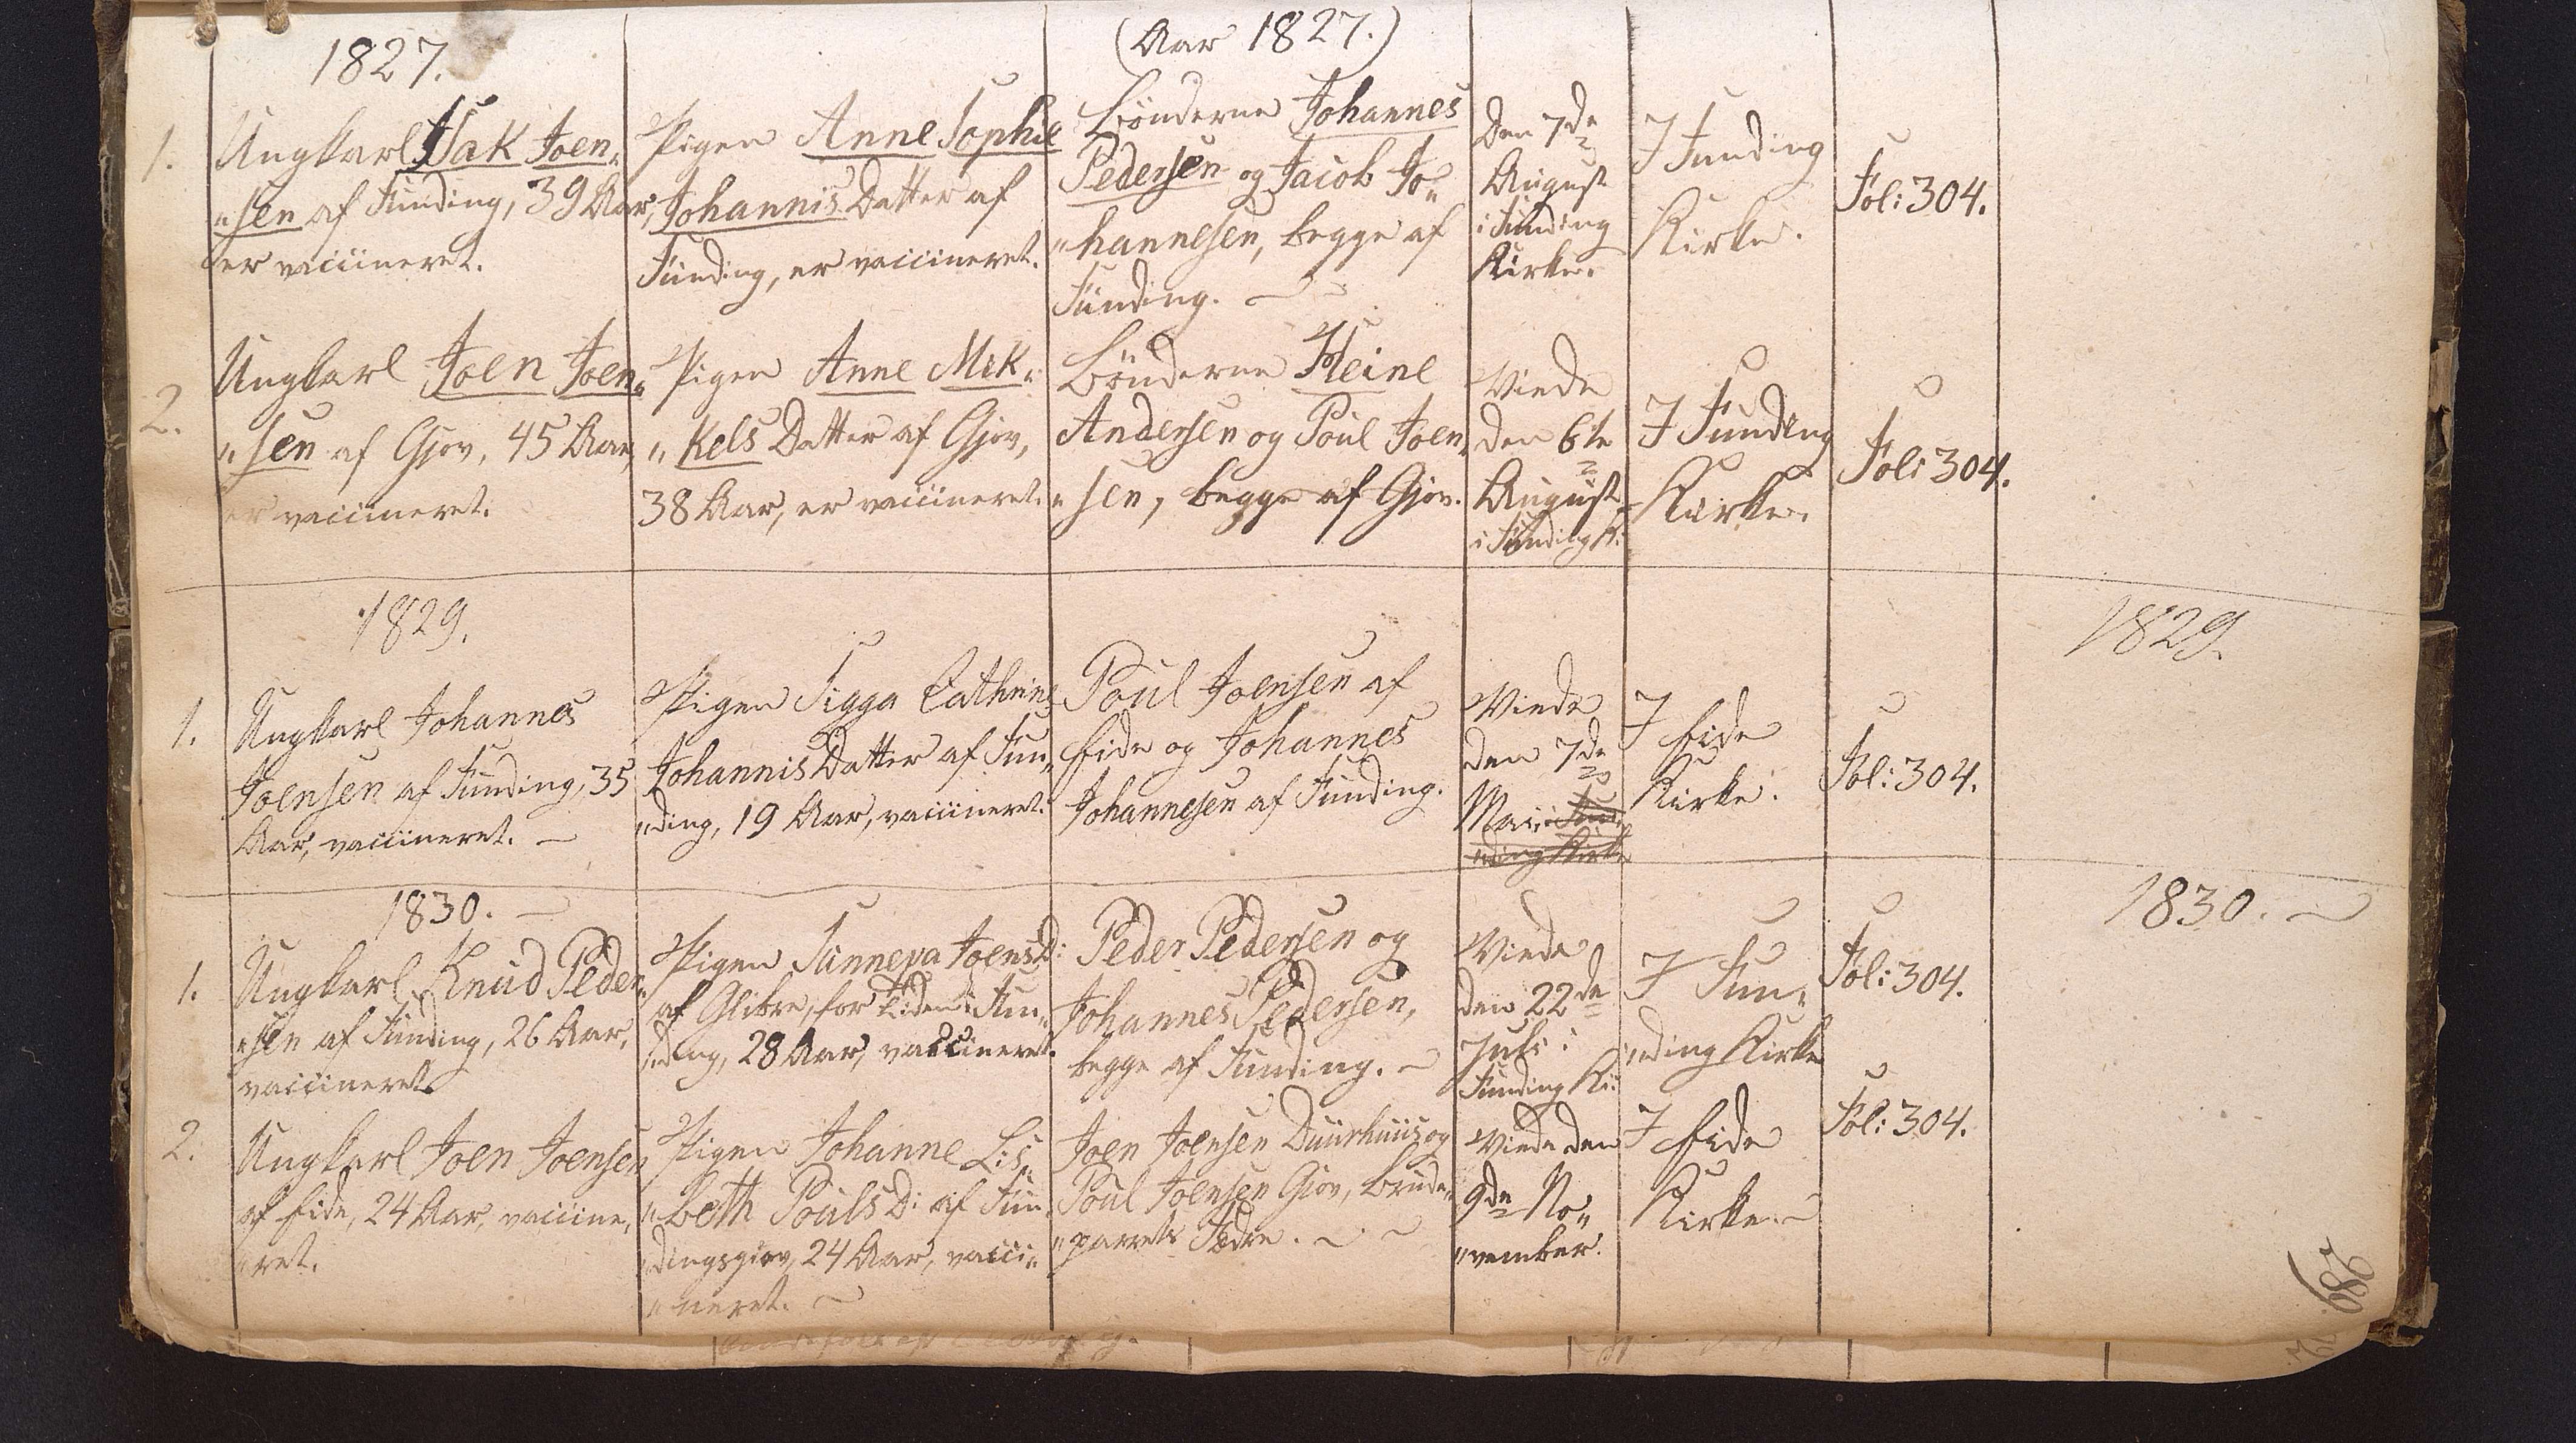 1827.
(Aar 1827.)
1.
Ungkarl Isak Joen„
„sen af Funding, 39 Aar,
er vaccineret.
Pigen Anne Sophie
Johannis Datter af
Funding, er vaccineret.
Bönderne Johannes
Pedersen og Jacob Jo„
„hannesen, begge af
Funding.
Den 7de
August
i Funding
Kirke.
I Funding
Kirke.
Fol: 304.
2.
Ungkarl Joen Joen„
„sen af Gjov, 45 Aar,
er vaccineret.
Pigen Anne Mik„
„kels Datter af Gjov,
38 Aar, er vaccineret.
Bönderne Heine
Andersen og Poul Joen„
„sen, begge af Gjov.
Viede
den 6te
August
i Funding K:
I Funding
Kirke.
Fol: 304.
1829.
1829.
1.
Ungkarl Johannes
Joensen af Funding, 35
Aar, vaccineret.
Pigen Sigga Cathrine
Johannis Datter af Fun„
„ding, 19 Aar, vaccineret.
Poul Joensen af
Eide og Johannes
Johannesen af Funding.
Viede
den 7de
Mai i Fun„
„ding Kirke
I Eide
Kirke.
Fol: 304.
1830.
1830.
1.
Ungkarl Knud Peder„
„sen af Funding, 26 Aar,
vaccineret
Pigen Sunneva Joens D:
af Glibre, for Tiden i Fun„
„ding, 28 Aar, vaccineret.
Peder Pedersen og
Johannes Pedersen,
begge af Funding.
Viede
den 22de
Juli i
Funding Ki:
I Fun„
„ding Kirke
Fol: 304.
2.
Ungkarl Joen Joensen
af Eide, 24 Aar, vaccine„
„ret.
Pigen Johanne Lis„
„beth Pouls D: af Fun„
„dingsgiov, 24 Aar, vacci„
„neret.
Joen Joensen Duurhuus og
Poul Joensen Gjov, Brude„
„parrets Fædre.
Viede den
9de No„
„vember.
I Eide
Kirke
Fol: 304.
289